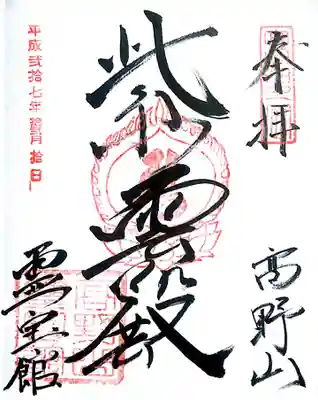 奉拝
高野山
紫雲殿
霊宝館
平成弐拾七年 月 拾日